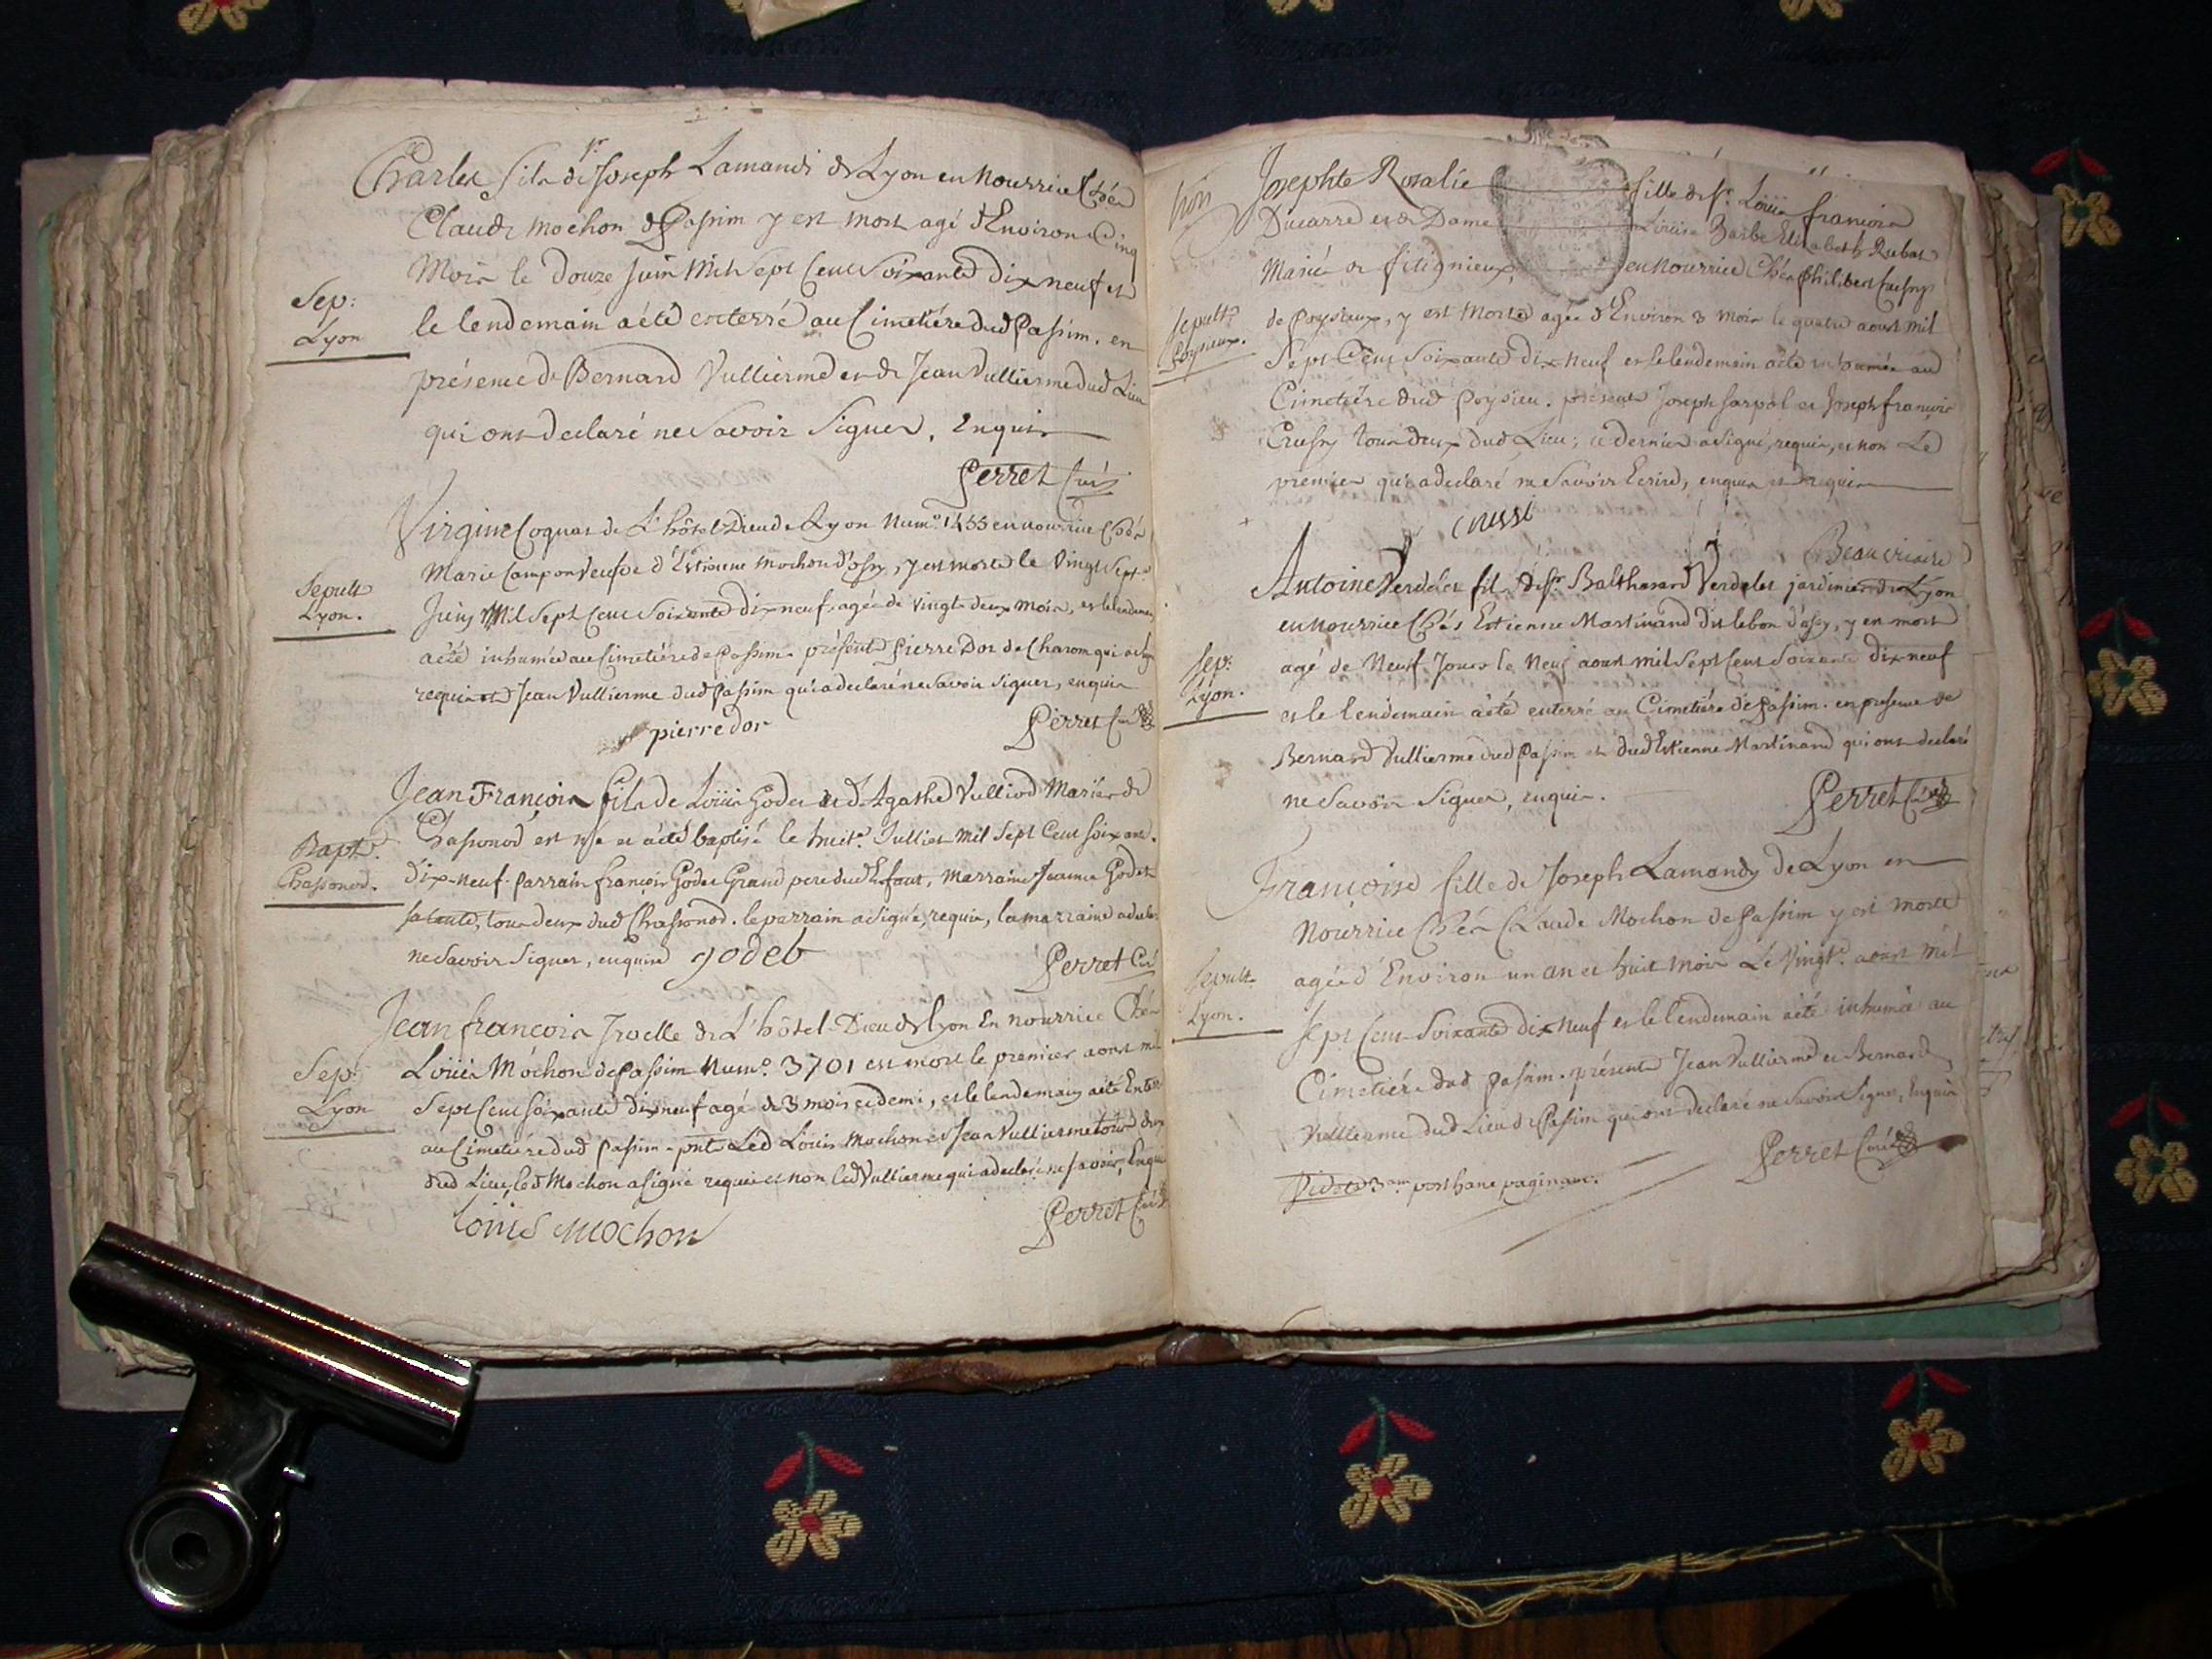 Charles fils de Sr Joseph Lamandi de Lyon en Nourrice Chés
Claude Mochon de Passim y est mort agé d'Environ Cinq
Mois le douze Juin Mil Sept Cent Soixante dix neuf et
Sep:
Lyon
le lendemain a été enterré au Cimetiére dud Passim. en
présence de Bernard Vullierme et de Jean Vullierme dud Lieu
qui ont declaré ne Savoir Signer, Enquis
Perret Curé
Virgine Coquat de L'hôtel Dieu de Lyon Num°. 1455 en nourrice Chés
Marie Campon Veufve d'Estienne Mochon d'ossy, y est morte le Vingt Sept.e
Sepult
Lyon.
Juin Mil Sept Cent Soixante dix neuf, agée de Vingt deux Mois, et le lendemain
a été inhumée au Cimetiére de Passim. présent Pierre Dor de Charom qui a signé
requis et Jean Vullierme dud Passim qui a declaré ne Savoir Signer, enquis
pierre dor
Perret Curé
Jean François fils de Loüis Godet et d'Agathe Vulliod Mariés de
Chassonod est né et a été baptisé le huit.e Julliet Mil Sept Cent Soixante.
Bapt.
Chassonod.
dix-neuf. Parrain françois Godet Grand pere dud Enfant, Marraine Jeanne Godet
sa tante, tous deux dud Chassonod. le parrain a Signé, requis, la marraine a declaré
ne Savoir Signer, enquise godet
Perret Curé
Jean francois de L'hôtel-Dieu de Lyon En nourrice Chés
Loüis Mochon de Passim Num°. 3701 est mort le premier aoust mil
Sep:
Lyon
Sept Cent soixante dix neuf agé de 3 mois et demi, et le lendemain a été Enterré
au Cimetiére dud Passim. pnts Led Loüis Mochon et Jean Vullierme tous deux
dud Lieu, led Mochon a signé requis et non led Vullierme qui a declaré ne savoir, Enquis
Loüis mochon
Perret Curé
Josephte Rosalie fille de Sr. Loüis françois
Ducarre et de Dame Loüise Barbe Elizabeth Rubat
Mariés de fitignieux, en Nourrice Chés Philibert
Sepult.
Poysieux.
de Poysieux, y est Morte agée d'Environ 3 mois le quatre aoust mil
Sept Cent Soixante dix-Neuf et le lendemain a été inhumée au
Cimetiére dud Poysieu. présents Joseph Sarpol et Joseph françois
tous deux dud Lieu; ce dernier a signé, requis, et non Le
premier qui a declaré ne Savoir Ecrire, enquis et requis
Antoine Verdelet fils de Sr Balthazard Verdelet jardinier de Lyon
en Nourrice Chés Estienne Martinand dit lebon d'ossy, y est mort
Sep:
Lyon.
agé de Neuf Jours le Neuf aoust mil Sept Cent Soixante dix-neuf
et le lendemain a été enterré au Cimetiére de Passim. en présence de
Bernard Vullierme dud Passim et dud Estienne Martinand qui ont declaré
ne Savoir Signer, enquis.
Perret Curé
Françoise fille de Joseph Lamandy de Lyon en
Nourrice Chés Claude Mochon de Passim y est morte
Sepult
Lyon.
agée d'Environ un an et huit Mois Le Vingt.e aoust mil
Sept Cent Soixante dix Neuf et le lendemain a été inhumée au
Cimetiére dud Passim. présents Jean Vullierme et Bernard
Vullierme dud Lieu de Passim qui ont declaré ne Savoir Signer, Enquis
Perret Curé
Videte 3am post hanc paginam.